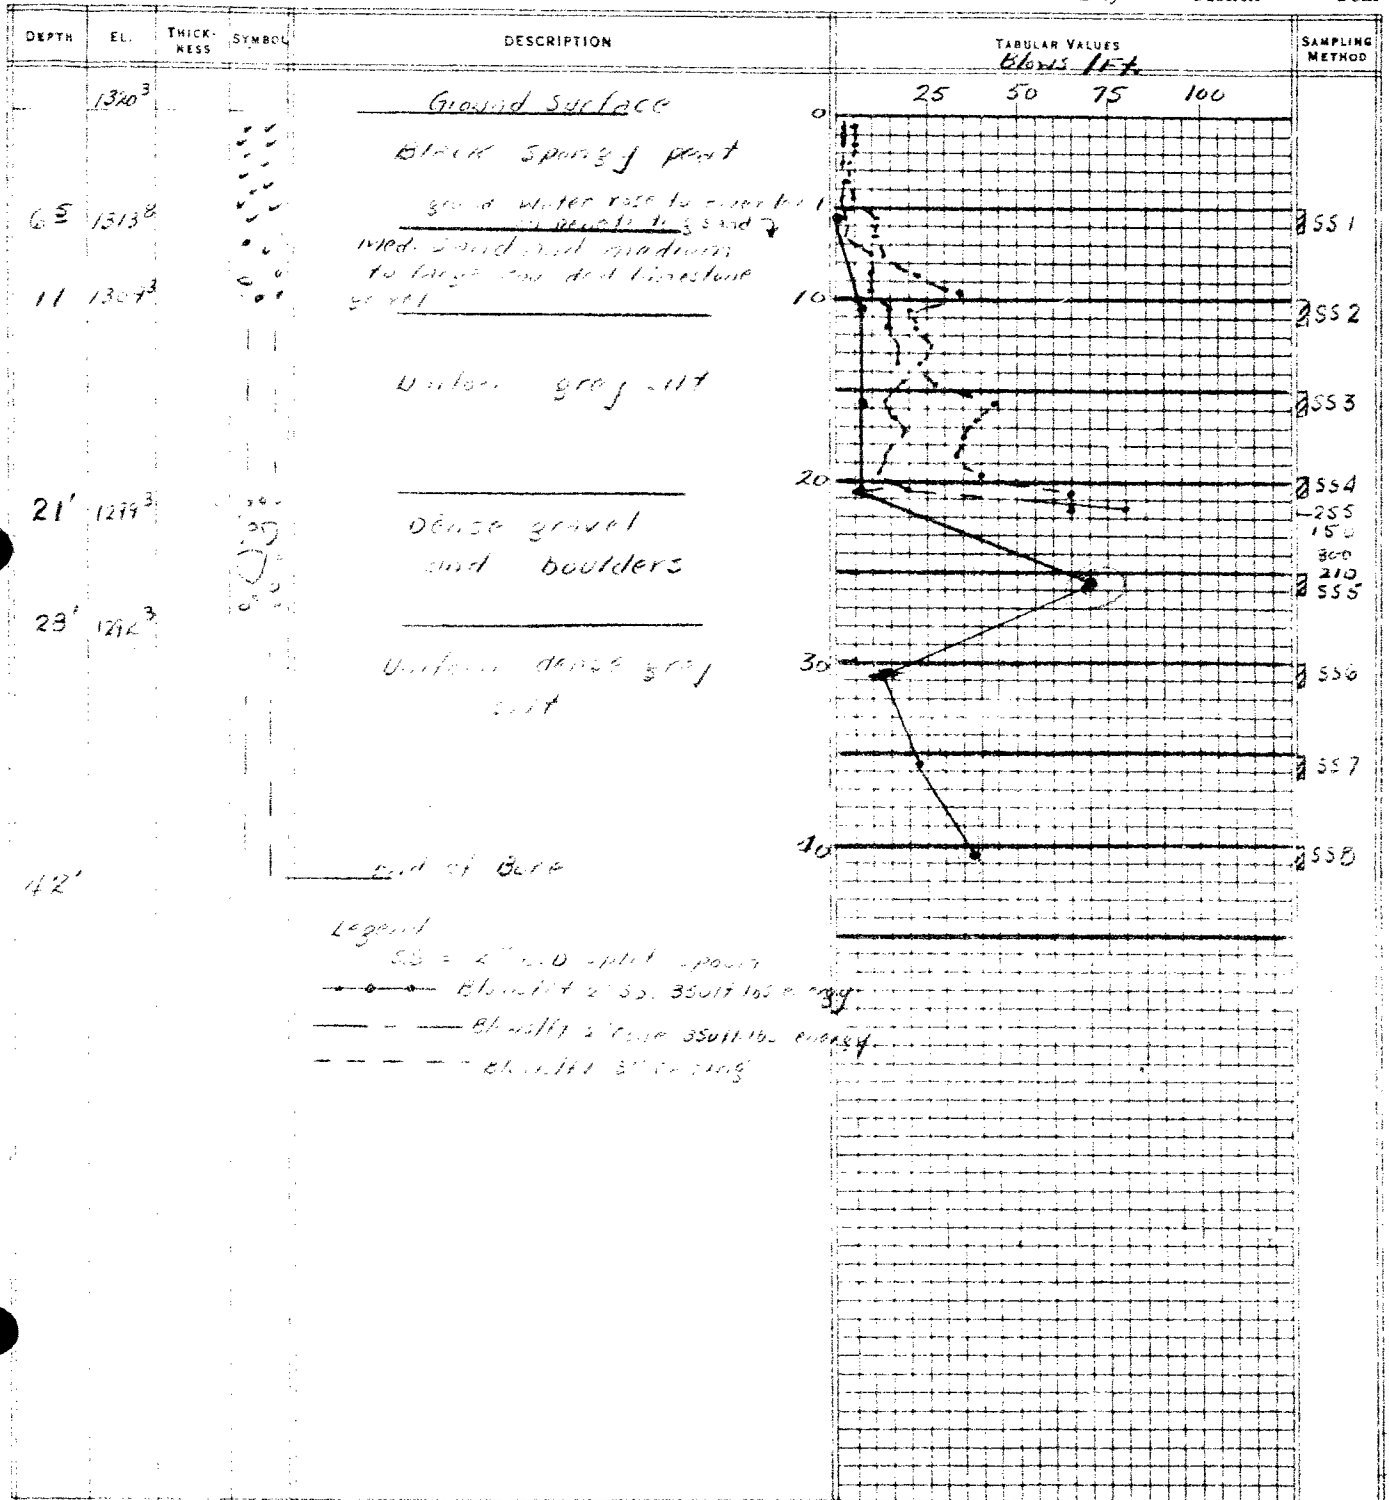 DEPTH EL. THICK-NESS SYMBOL DESCRIPTION TABULAR VALUES SAMPLING METHOD
Blows /Ft.
25 50 75 100
1320³ Ground Surface 0
Black Spongy peat
ground water rose to
6⁵ 1313⁸ sand SS1
Med. sand and medium
to large limestone
gravel
11 1309³ 10 SS2
gray silt SS3
20 SS4
21' 1299³ Dense gravel
and boulders
255
150
300
210
SS5
28' 1292³
Uniform dense gray
silt
30 SS6
SS7
40 SS8
42' End of Bore
Legend
SS = 2" O.D split spoon
Blows/ft 2" SS. 350 ft lbs energy
Blows/ft 2" cone 350 ft lbs energy
Blows/ft casing